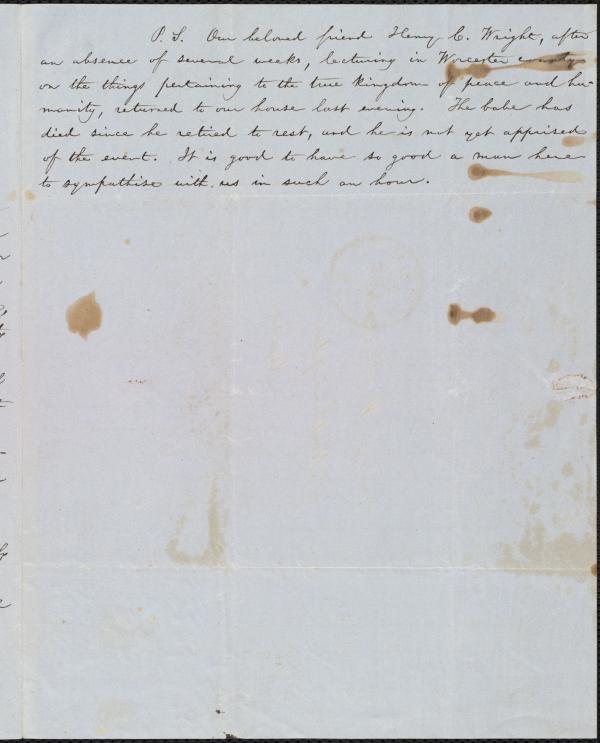 P. S. Our beloved friend Henry C. Wright, after
an absence of several weeks, lecturing in Worcester county
on the things pertaining to the true kingdom of peace and hu-
manity, returned to our house last evening. The babe has
died since he retired to rest, and he is not yet apprised
of the event. It is good to have so good a man here
to sympathise with us in such an hour.